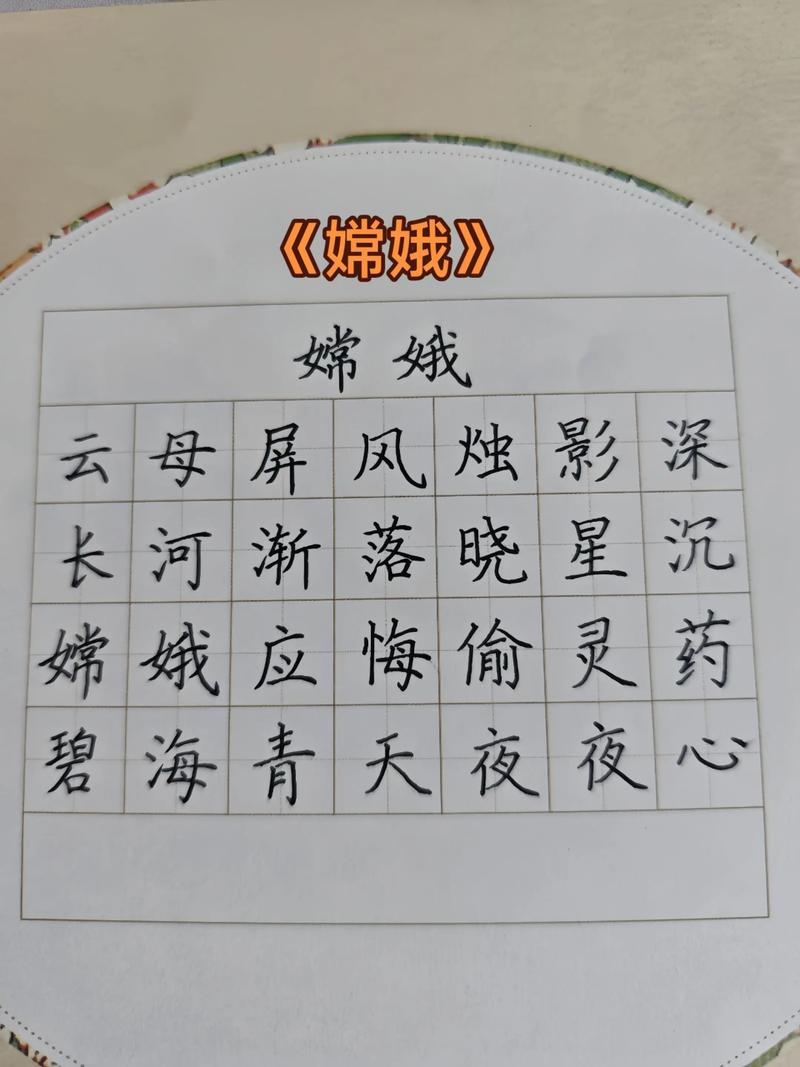 《嫦娥》
嫦娥
云母屏风烛影深
长河渐落晓星沉
嫦娥应悔偷灵药
碧海青天夜夜心